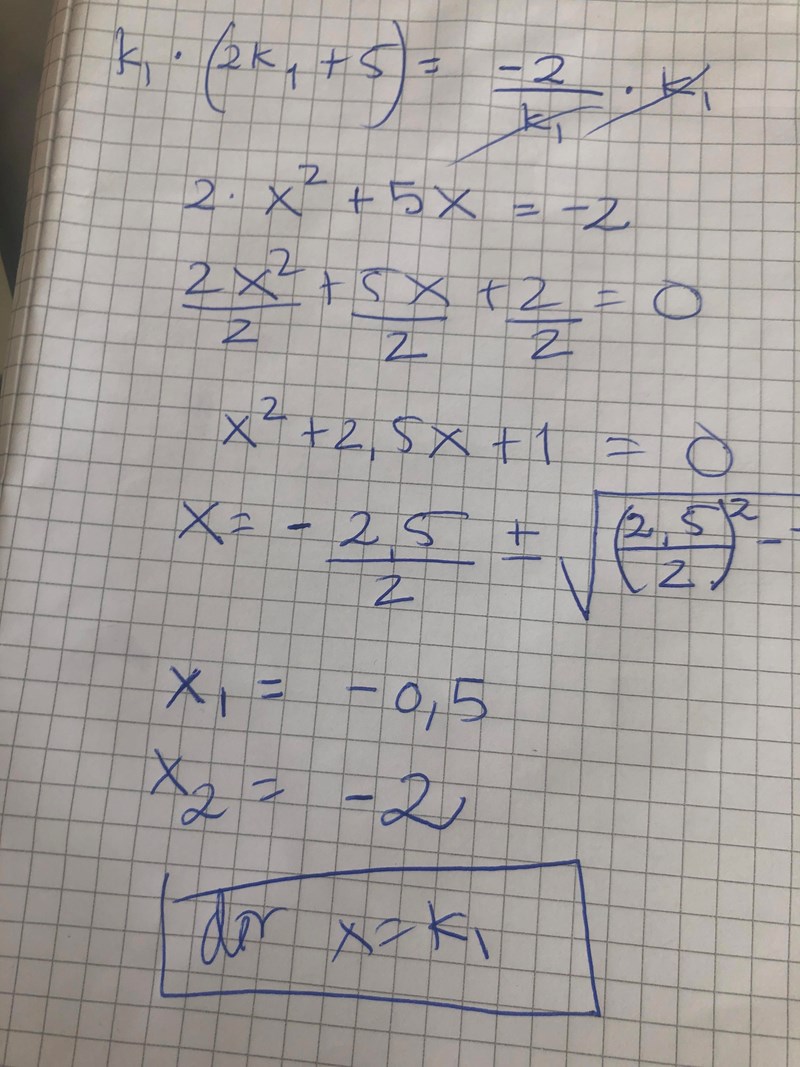 k₁ · (2k₁ + 5) = -2/k₁ · k₁
2 · x² + 5x = -2
2x²/2 + 5x/2 + 2/2 = 0
x² + 2,5x + 1 = 0
x = - 2,5/2 ± √(2,5/2)² -
x₁ = -0,5
x₂ = -2
där x = k₁